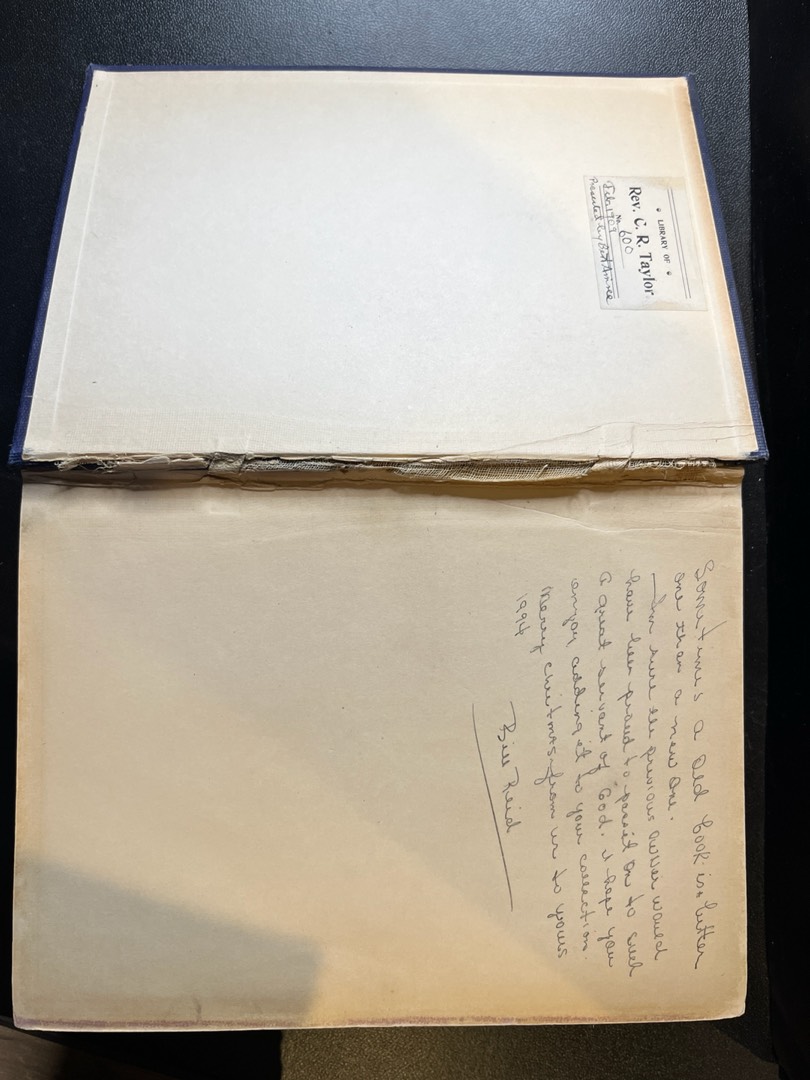 LIBRARY OF
Rev. C. R. Taylor.
No. 600
Feb. 1909
Presented by
Sometimes a old book is better
one than a new one.
I'm sure the previous owner would
have been proud to pass it on to such
a great servant of God. I hope you
enjoy adding it to your collection.
Merry Christmas from us to yours
1994
Bill Reid